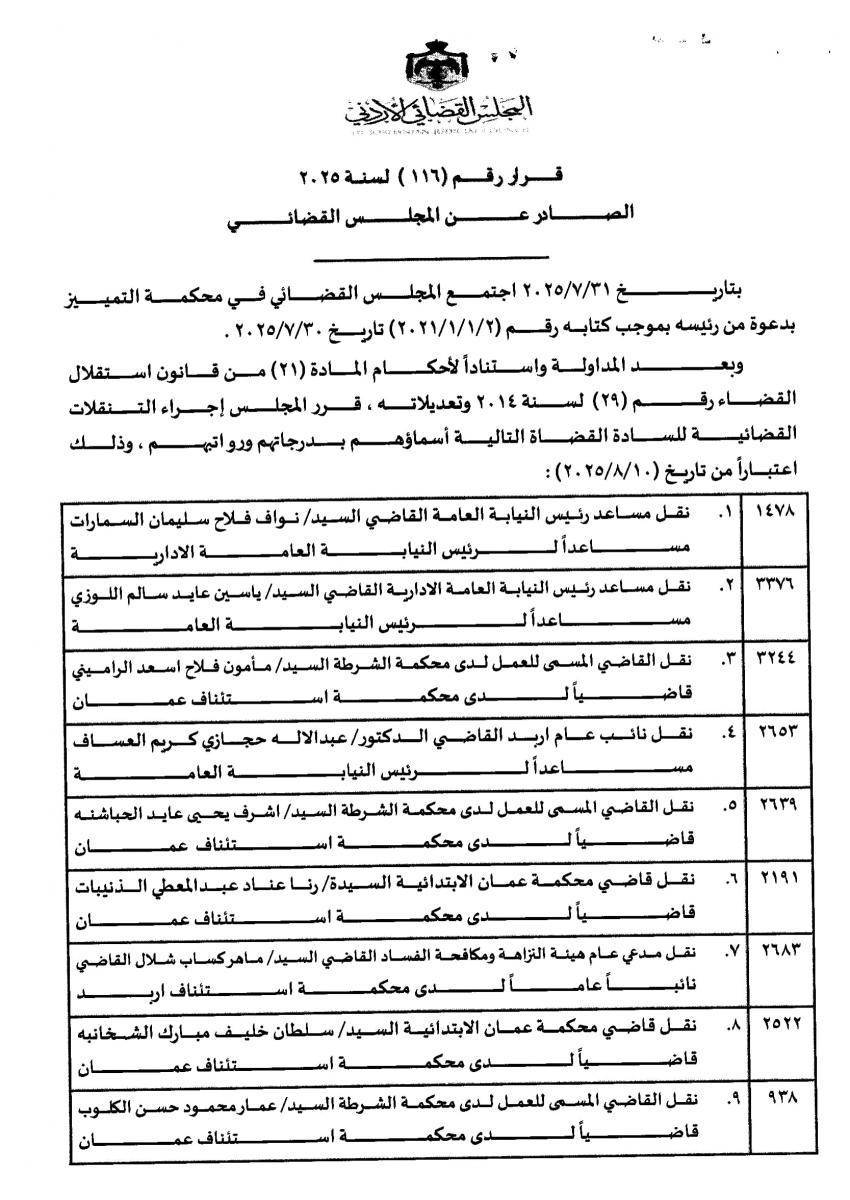 المجلس القضائي الأردني
THE JORDANIAN JUDICIAL COUNCIL
قرار رقم (١١٦) لسنة ٢٠٢٥
الصادر عن المجلس القضائي
بتاريخ ٢٠٢٥/٧/٣١ اجتمع المجلس القضائي في محكمة التمييز
بدعوة من رئيسه بموجب كتابه رقم (٢٠٢١/١/١/٢) تاريخ ٢٠٢٥/٧/٣٠ .
وبعد المداولة واستناداً لأحكام المادة (٢١) من قانون استقلال
القضاء رقم (٢٩) لسنة ٢٠١٤ وتعديلاته ، قرر المجلس إجراء التنقلات
القضائية للسادة القضاة التالية أسماؤهم بدرجاتهم ورواتبهم ، وذلك
اعتباراً من تاريخ (٢٠٢٥/٨/١٠) :
١٤٧٨ ١. نقل مساعد رئيس النيابة العامة القاضي السيد/ نواف فلاح سليمان السمارات
مساعداً لرئيس النيابة العامة الادارية
٣٣٧٦ ٢. نقل مساعد رئيس النيابة العامة الادارية القاضي السيد/ ياسين عايد سالم اللوزي
مساعداً لرئيس النيابة العامة
٣٢٤٤ ٣. نقل القاضي المسمى للعمل لدى محكمة الشرطة السيد/ مأمون فلاح اسعد الراميني
قاضياً لدى محكمة استئناف عمان
٢٦٥٣ ٤. نقل نائب عام اربد القاضي الدكتور/ عبدالاله حجازي كريم العساف
مساعداً لرئيس النيابة العامة
٢٦٣٩ ٥. نقل القاضي المسمى للعمل لدى محكمة الشرطة السيد/ اشرف يحيى عايد الحباشنه
قاضياً لدى محكمة استئناف عمان
٢١٩١ ٦. نقل قاضي محكمة عمان الابتدائية السيدة/ رنا عناد عبدالمعطي الذنيبات
قاضياً لدى محكمة استئناف عمان
٢٦٨٣ ٧. نقل مدعي عام هيئة النزاهة ومكافحة الفساد القاضي السيد/ ماهر كساب شلال القاضي
نائباً عاماً لدى محكمة استئناف اربد
٢٥٢٢ ٨. نقل قاضي محكمة عمان الابتدائية السيد/ سلطان خليف مبارك الشخانبه
قاضياً لدى محكمة استئناف عمان
٩٣٨ ٩. نقل القاضي المسمى للعمل لدى محكمة الشرطة السيد/ عمار محمود حسن الكلوب
قاضياً لدى محكمة استئناف عمان